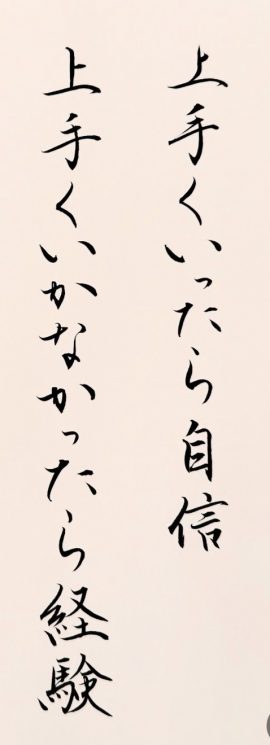 上手くいったら自信
上手くいかなかったら経験